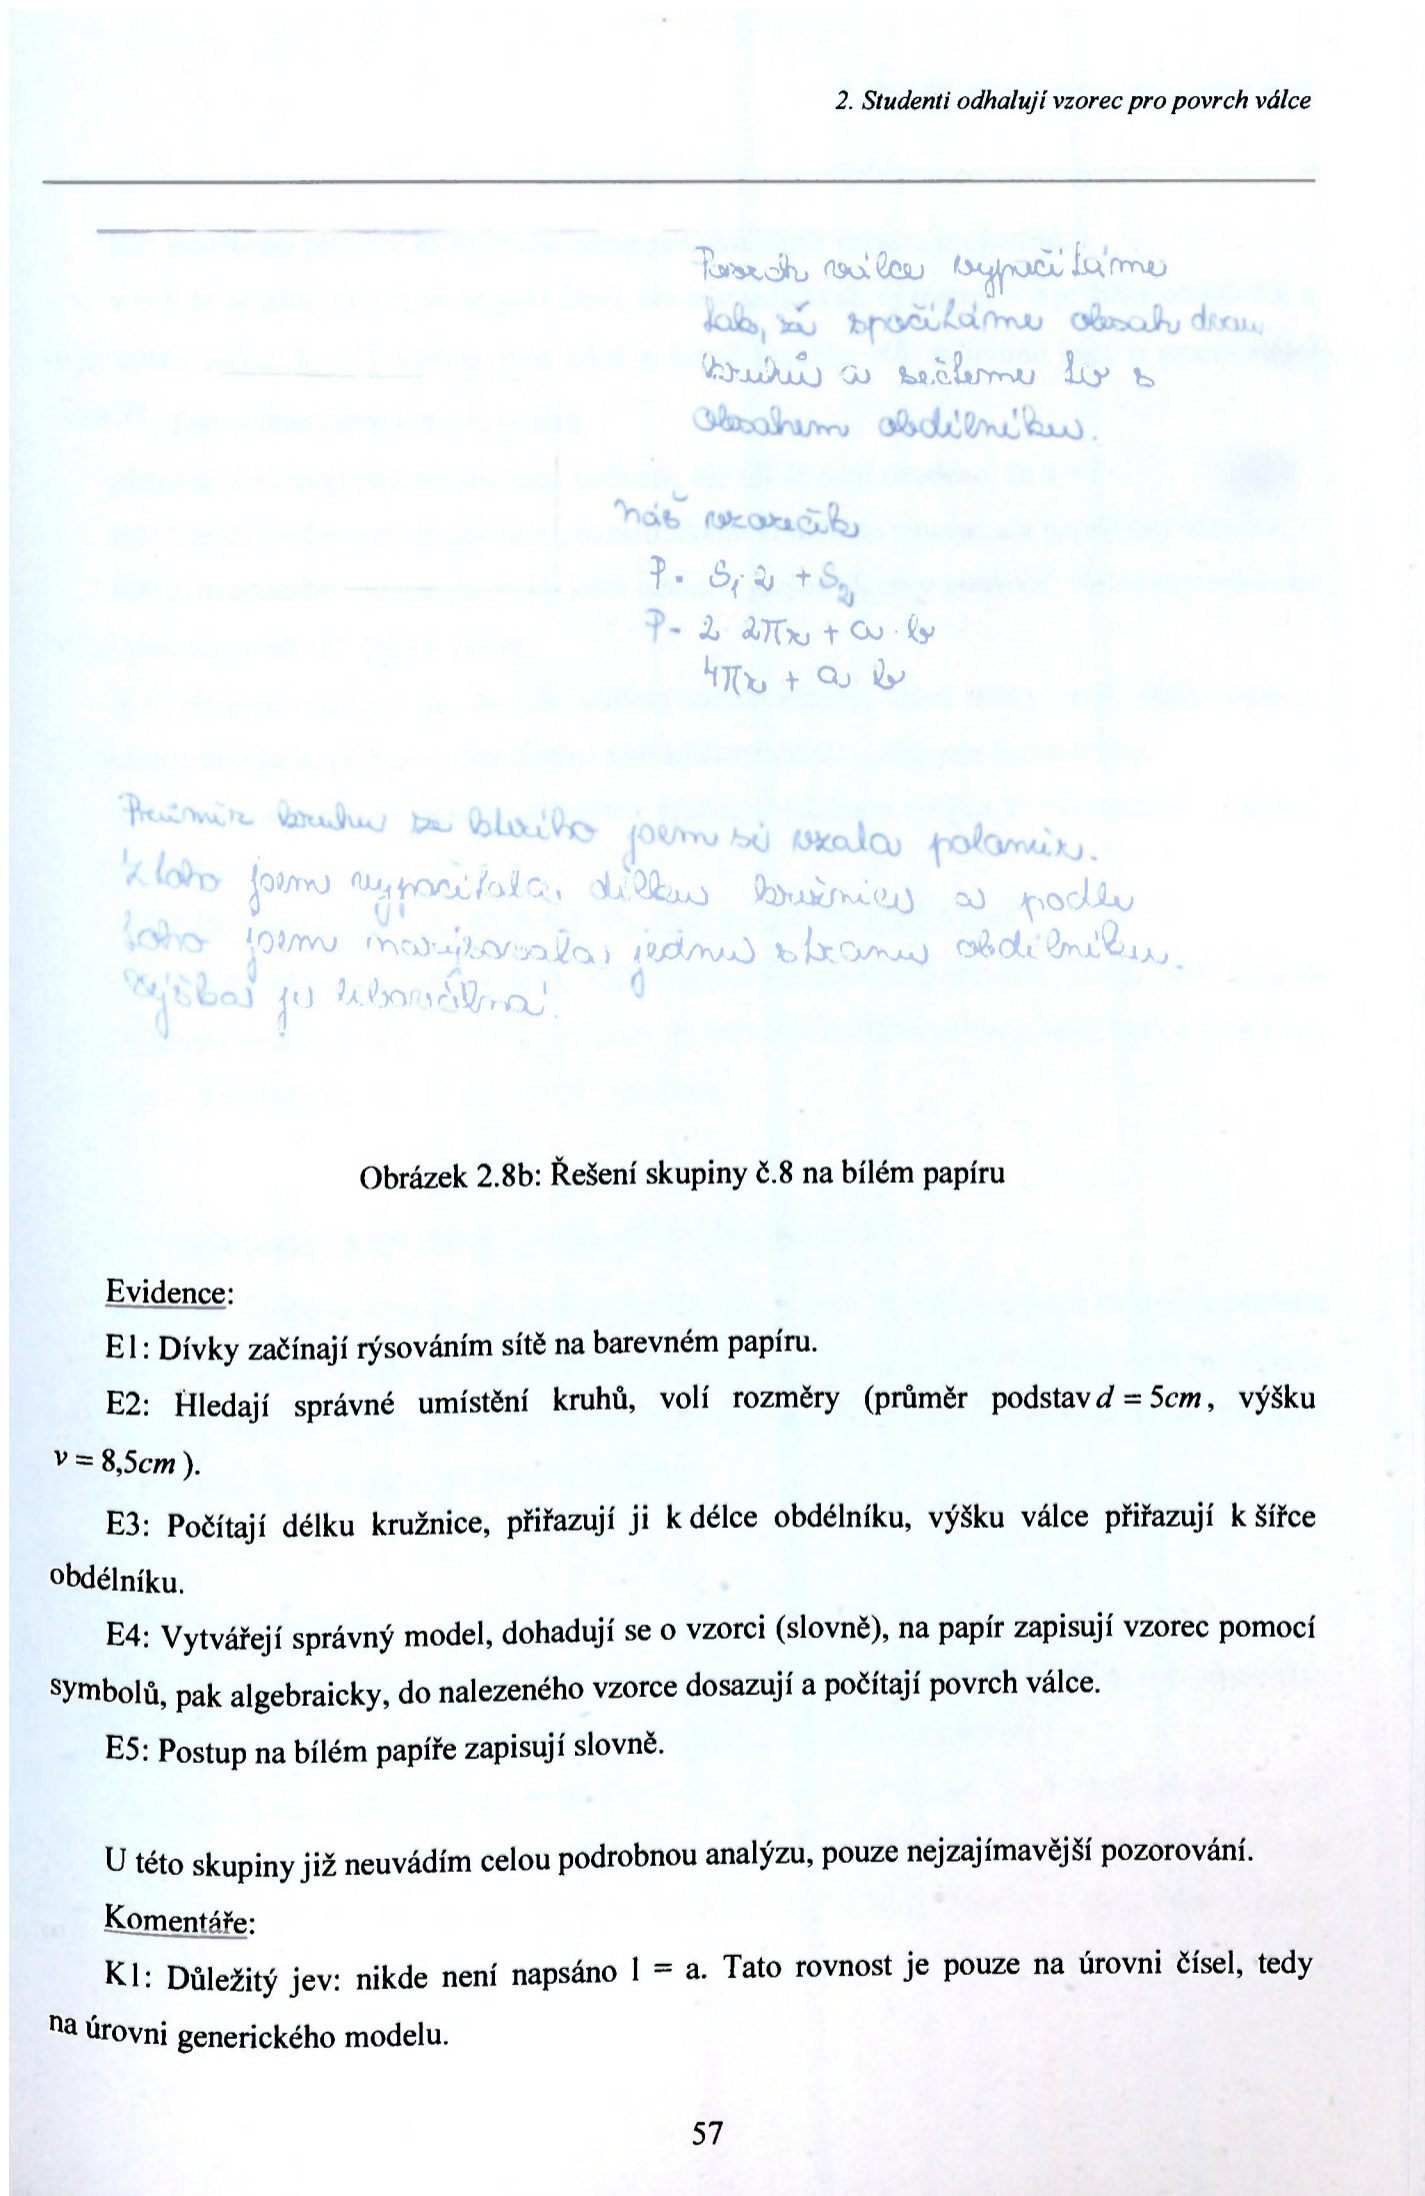 2. Studenti odhalují vzorec pro povrch válce
Povrch válce vypočítáme
tak, že spočítáme obsah dvou
kruhů a sečteme to s
obsahem obdélníku.
Náš vzoreček
P = S₁ 2 + S₂
P = 2 2πr + a · b
4πr + a · b
Průměr kruhu ze kterého jsem si vzala poloměr.
Z toho jsem vypočítala délku kružnice a podle
toho jsem narýsovala jednu stranu obdélníku.
Výška je libovolná.
Obrázek 2.8b: Řešení skupiny č.8 na bílém papíru
Evidence:
E1: Dívky začínají rýsováním sítě na barevném papíru.
E2: Hledají správné umístění kruhů, volí rozměry (průměr podstav d = 5cm, výšku
v = 8,5cm ).
E3: Počítají délku kružnice, přiřazují ji k délce obdélníku, výšku válce přiřazují k šířce
obdélníku.
E4: Vytvářejí správný model, dohadují se o vzorci (slovně), na papír zapisují vzorec pomocí
symbolů, pak algebraicky, do nalezeného vzorce dosazují a počítají povrch válce.
E5: Postup na bílém papíře zapisují slovně.
U této skupiny již neuvádím celou podrobnou analýzu, pouze nejzajímavější pozorování.
Komentáře:
K1: Důležitý jev: nikde není napsáno l = a. Tato rovnost je pouze na úrovni čísel, tedy
na úrovni generického modelu.
57